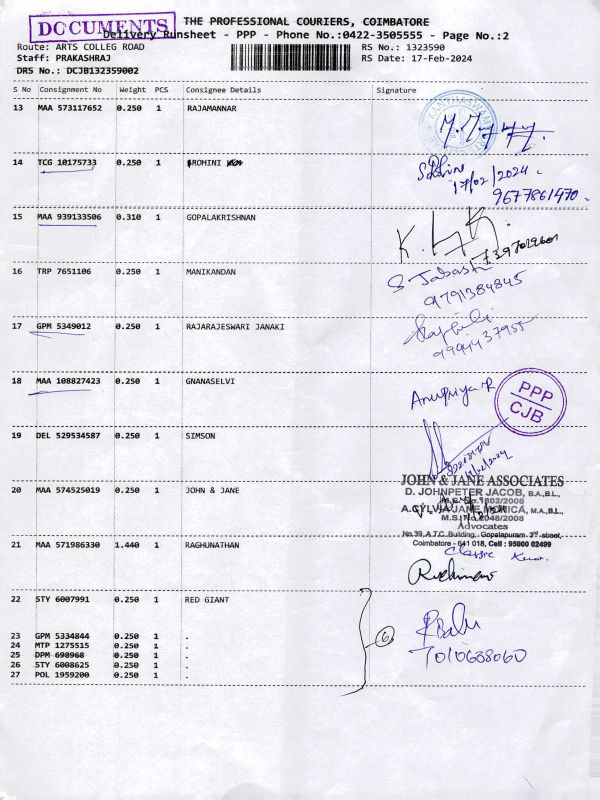 DOCUMENTS
THE PROFESSIONAL COURIERS, COIMBATORE
Delivery Runsheet - PPP - Phone No.:0422-3505555 - Page No.:2
Route: ARTS COLLEG ROAD RS No.: 1323590
Staff: PRAKASHRAJ RS Date: 17-Feb-2024
DRS No.: DCJB132359002
S No Consignment No Weight PCS Consignee Details Signature
13 MAA 573117652 0.250 1 RAJAMANNAR
14 TCG 10175733 0.250 1 ROHINI
17/02/2024
9677861470
15 MAA 939133506 0.310 1 GOPALAKRISHNAN
16 TRP 7651106 0.250 1 MANIKANDAN
9791384845
17 GPM 5349012 0.250 1 RAJARAJESWARI JANAKI
18 MAA 108827423 0.250 1 GNANASELVI
Anupriya R
PPP
CJB
19 DEL 529534587 0.250 1 SIMSON
JOHN & JANE ASSOCIATES
20 MAA 574525019 0.250 1 JOHN & JANE
D. JOHNPETER JACOB, B.A.,B.L.,
M.S. No.1802/2008
A.SYLVIA JANE MONICA, M.A.,B.L.,
M.S. No.2048/2008
Advocates
No.39, A.T.C. Building, Gopalapuram 2nd street,
Coimbatore - 641 018, Cell : 95000 02499
21 MAA 571986330 1.440 1 RAGHUNATHAN
Classic
22 STY 6007991 0.250 1 RED GIANT
23 GPM 5334844 0.250 1 .
24 MTP 1275515 0.250 1 .
25 DPM 698968 0.250 1 .
26 STY 6008625 0.250 1 .
27 POL 1959200 0.250 1 .
6
Balu
7010638060